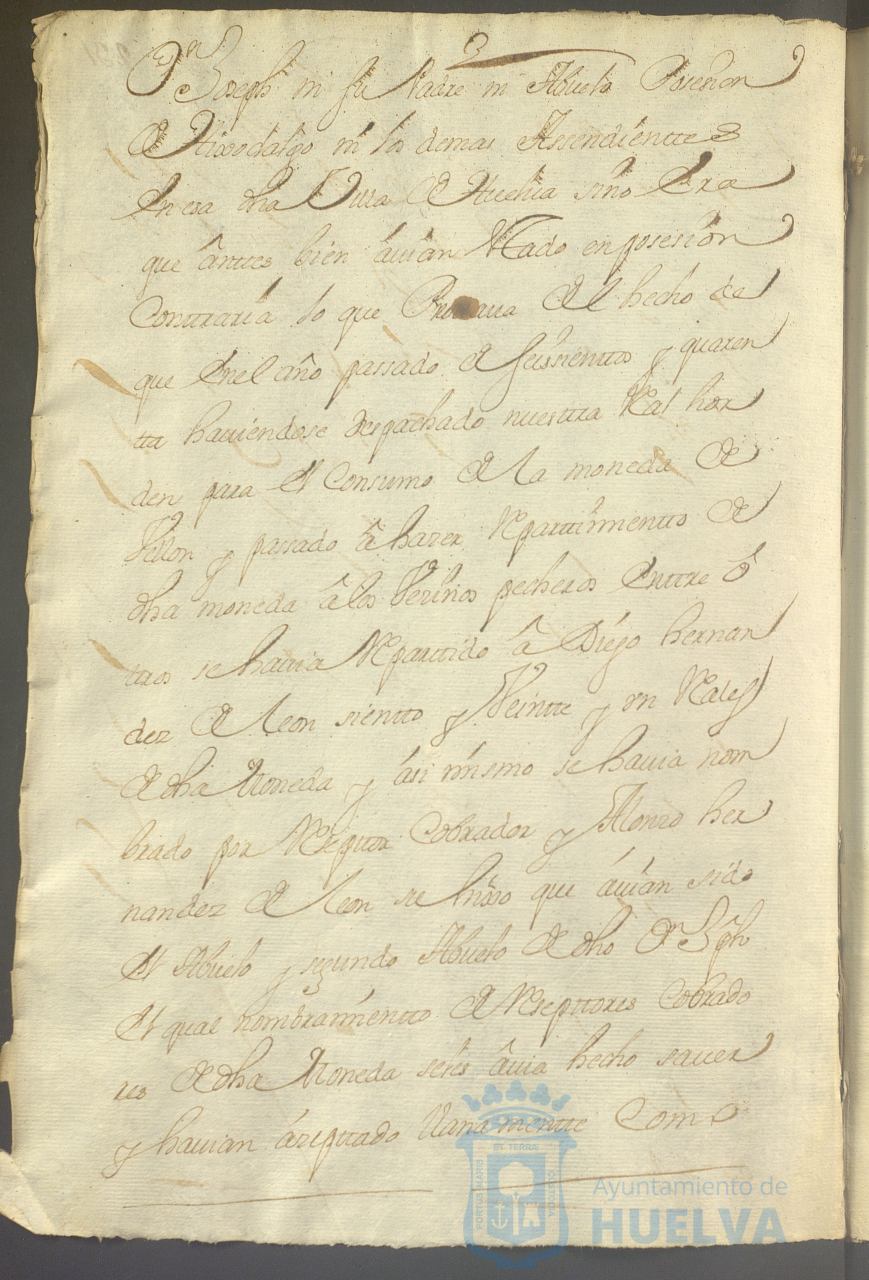 Dn Joseph ni su Padre ni Abuelo Posesion
de Hixodalgo ni los demas Assendienttes
en esa dha Villa de Huelva sino era
que ânttes bien âuian estado en posesión
Conttraria lo que Prouaua el hecho de
que en el año passado de seissientos y quaren
ta hauiendose despachado nuestra Real hor
den para el Consumo de la moneda de
Vellon y passado â hazer Repartimientto de
dha moneda â los Vezinos pecheros enttre ô
ttros se hauia Reparttido â Diego hernan
dez de Leon sientto y Veintte y un Reales
de dha Moneda y ási mismo se hauia nom
brado por Reseptor Cobrador y Alonso her
nandez de Leon su hijo que áuian sido
el Abuelo y segundo Abuelo de dho Dn Jph
el qual nombramientto de Reseptores Cobrado
res de dha Moneda seles âuia hecho sauer
y hauian ázepttado llanamentte Como
Ayuntamiento de
HUELVA